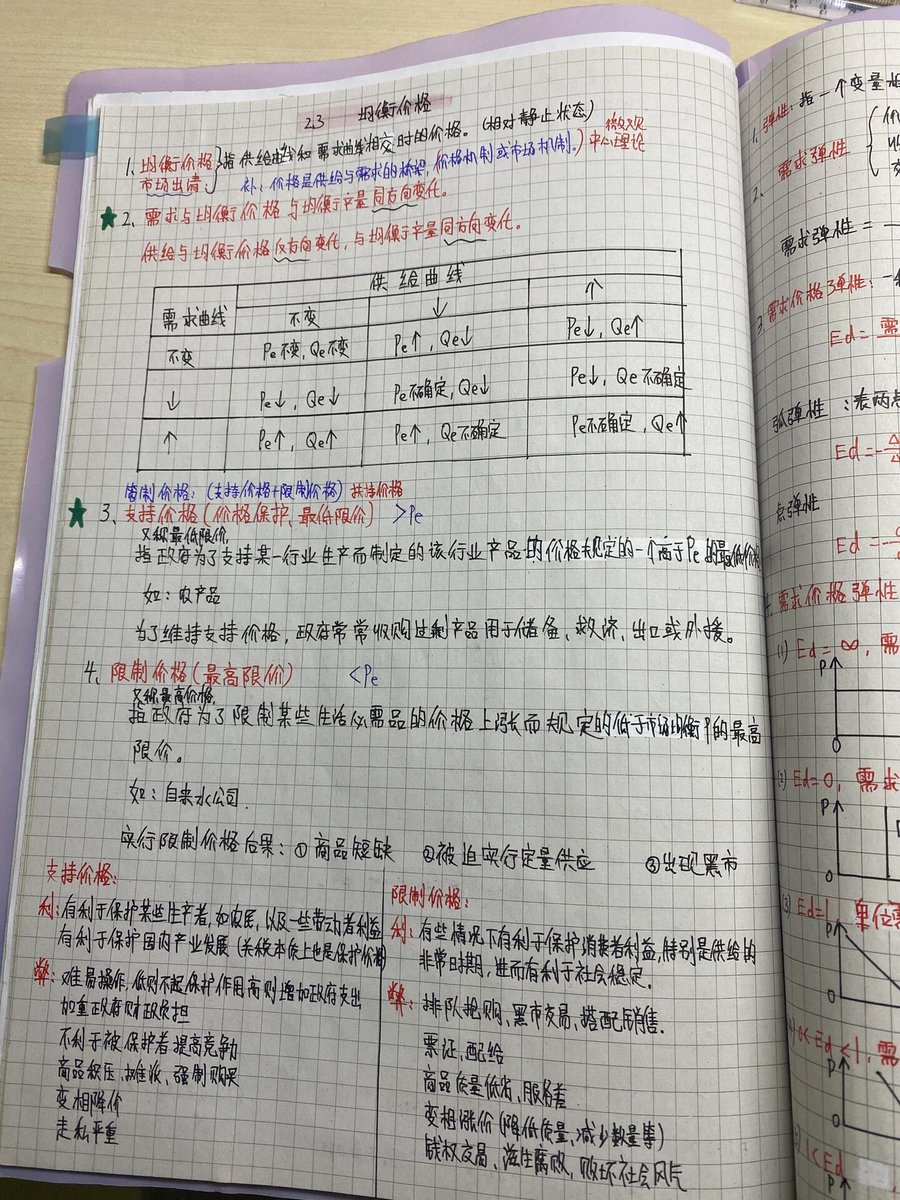 2.3 均衡价格
1、均衡价格 市场出清 } 指供给曲线和需求曲线相交时的价格。(相对静止状态)
补:价格是供给与需求的桥梁,价格机制或市场机制。) 微观中心理论
★ 2、需求与均衡价格与均衡产量同方向变化。
供给与均衡价格反方向变化,与均衡产量同方向变化。
供给曲线
需求曲线 不变 ↓ ↑
不变 Pe不变,Qe不变 Pe↑,Qe↓ Pe↓,Qe↑
↓ Pe↓,Qe↓ Pe不确定,Qe↓ Pe↓,Qe不确定
↑ Pe↑,Qe↑ Pe↑,Qe不确定 Pe不确定,Qe↑
管制价格:(支持价格+限制价格) 扶持价格
★ 3、支持价格(价格保护、最低限价) >Pe
又称最低限价,
指政府为了支持某一行业生产而制定的该行业产品的价格规定的一个高于Pe的最低价格
如:农产品
为了维持支持价格,政府常常收购过剩产品用于储备、救济、出口或外援。
4、限制价格(最高限价) <Pe
又称最高价格,
指政府为了限制某些生活必需品的价格上涨而规定的低于市场均衡P的最高
限价。
如:自来水公司.
实行限制价格后果:①商品短缺 ②被迫实行定量供应 ③出现黑市
支持价格:
利:有利于保护某些生产者,如农民,以及一些劳动者利益
有利于保护国内产业发展(关税本质上也是保护价格)
弊:难易操作,低则不起保护作用高则增加政府支出
加重政府财政负担
不利于被保护者提高竞争力
商品积压、摊派、强制购买
变相降价
走私严重
限制价格:
利:有些情况下有利于保护消费者利益,特别是供给的
非常时期,进而有利于社会稳定.
弊:排队抢购、黑市交易、搭配销售.
票证、配给
商品质量低劣、服务差
变相涨价(降低质量、减少数量等)
钱权交易、滋生腐败、败坏社会风气
1、弹性:指一个变量
2、需求弹性
需求弹性=
3、需求价格弹性:
Ed=
弧弹性:表两点
Ed=-
点弹性
Ed=-
需求价格弹性
(1) Ed=∞,需
P
0
(2) Ed=0,需求
P
0
(3) Ed=1,单位需
P
0
0<Ed<1,需
P
0
1<Ed
P